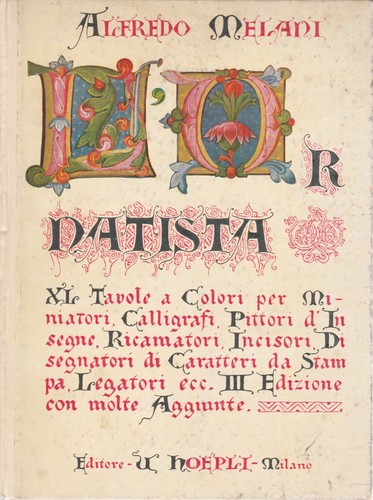 ALFREDO MELANI
L'OR
NATISTA
XL Tavole a Colori per Mi-
niatori, Calligrafi, Pittori d'In
segne, Ricamatori, Incisori, Di
segnatori di Caratteri da Stam
pa, Legatori ecc. III Edizione
con molte Aggiunte.
Editore - U HOEPLI - Milano